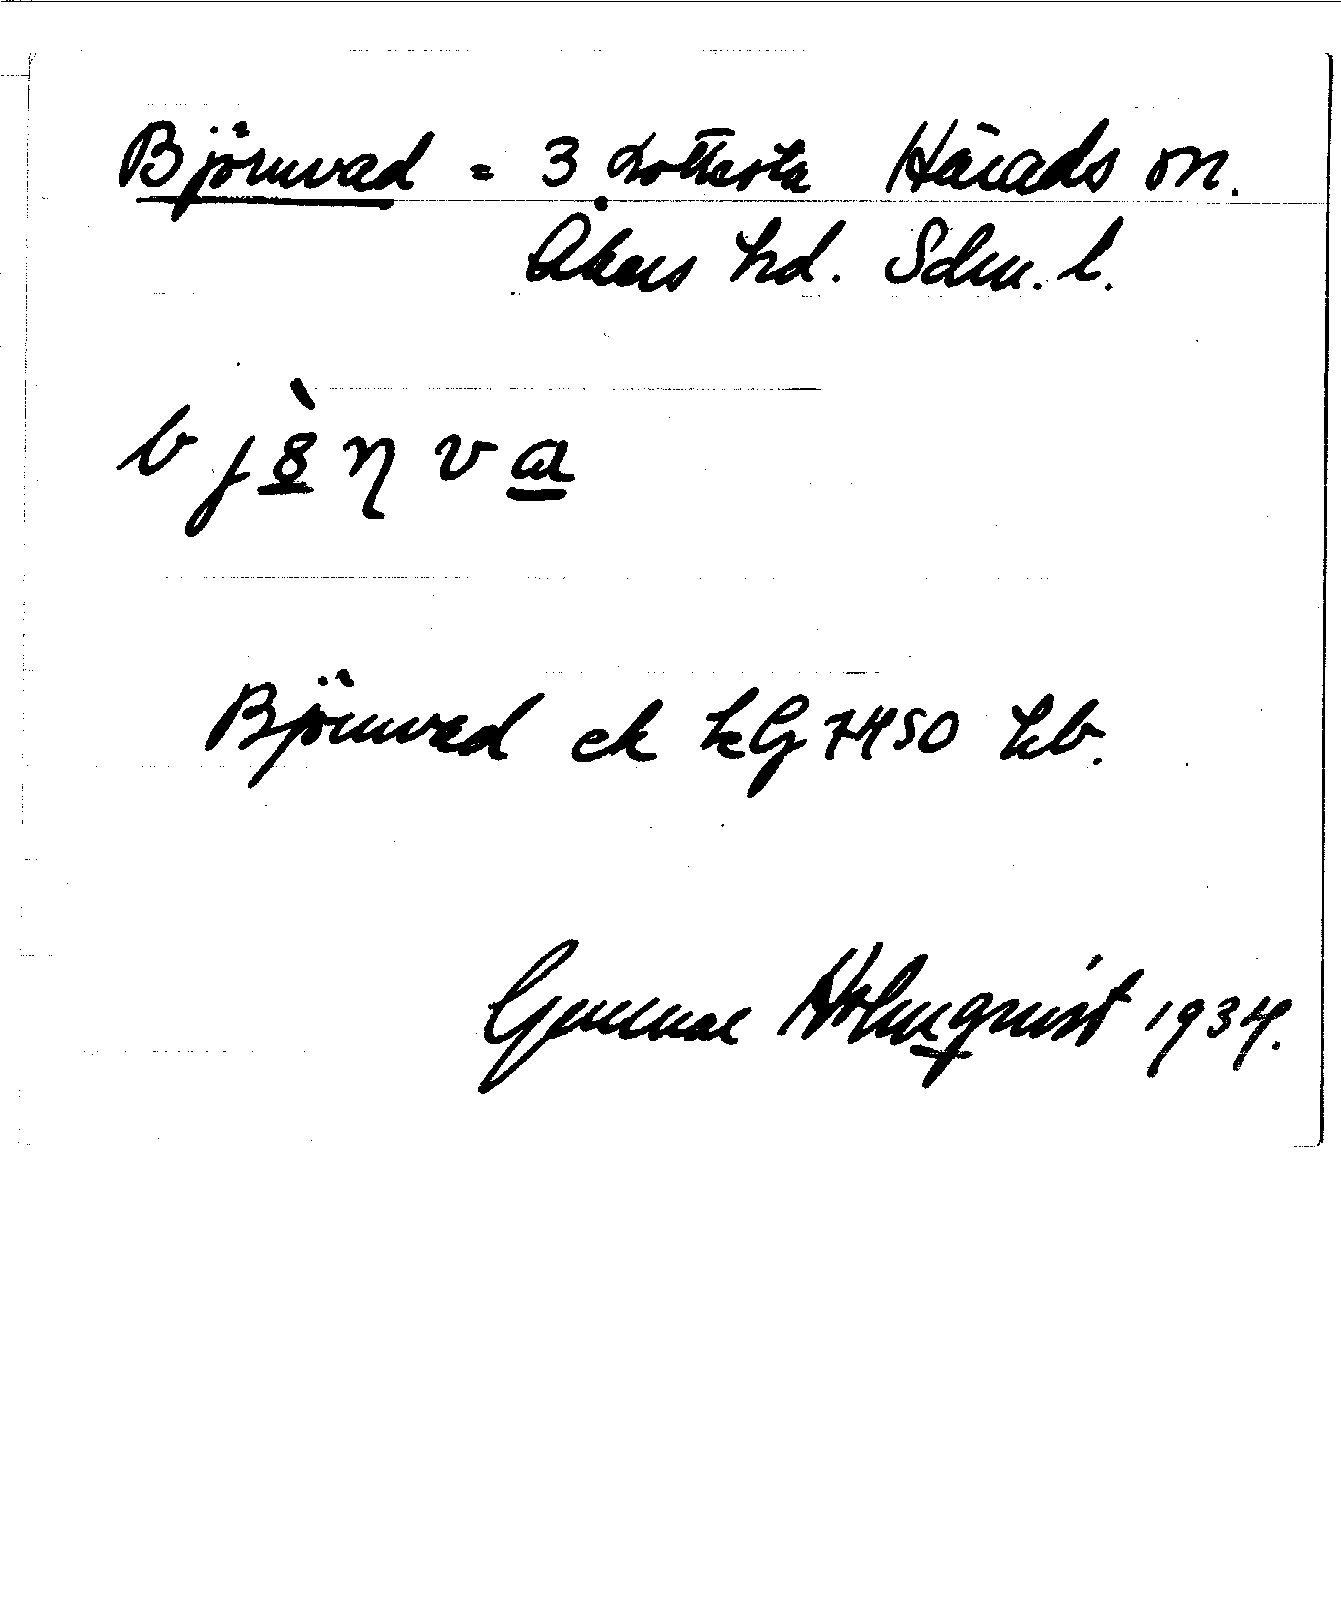 Björnvad = 3 Lottersta Härads sn.
Åkers hd. Sdm. l.
bjö̀ŋva
Björnvad ek kG 7450 hb.
Gunnar Holmqvist 1934.